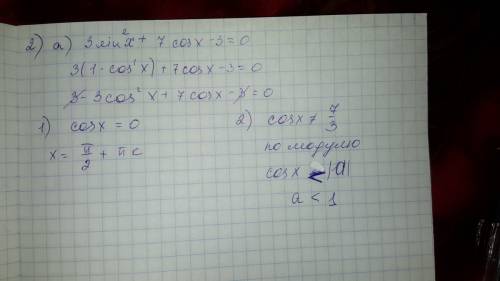 2) a) 3 sin²x + 7 cosx - 3 = 0
3(1 - cos²x) + 7cosx - 3 = 0
3 - 3cos²x + 7cosx - 3 = 0
1) cosx = 0
x = π/2 + πc
2) cosx ≠ 7/3
по модулю
cosx < |a|
a < 1